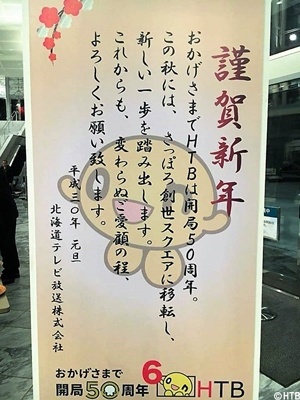 謹賀新年
おかげさまでHTBは開局50周年。
この秋には、さっぽろ創世スクエアに移転し、
新しい一歩を踏み出します。
これからも、変わらぬご愛顧の程、
よろしくお願い致します。
平成三〇年 元旦
北海道テレビ放送株式会社
おかげさまで
開局50周年 6 HTB
©HTB